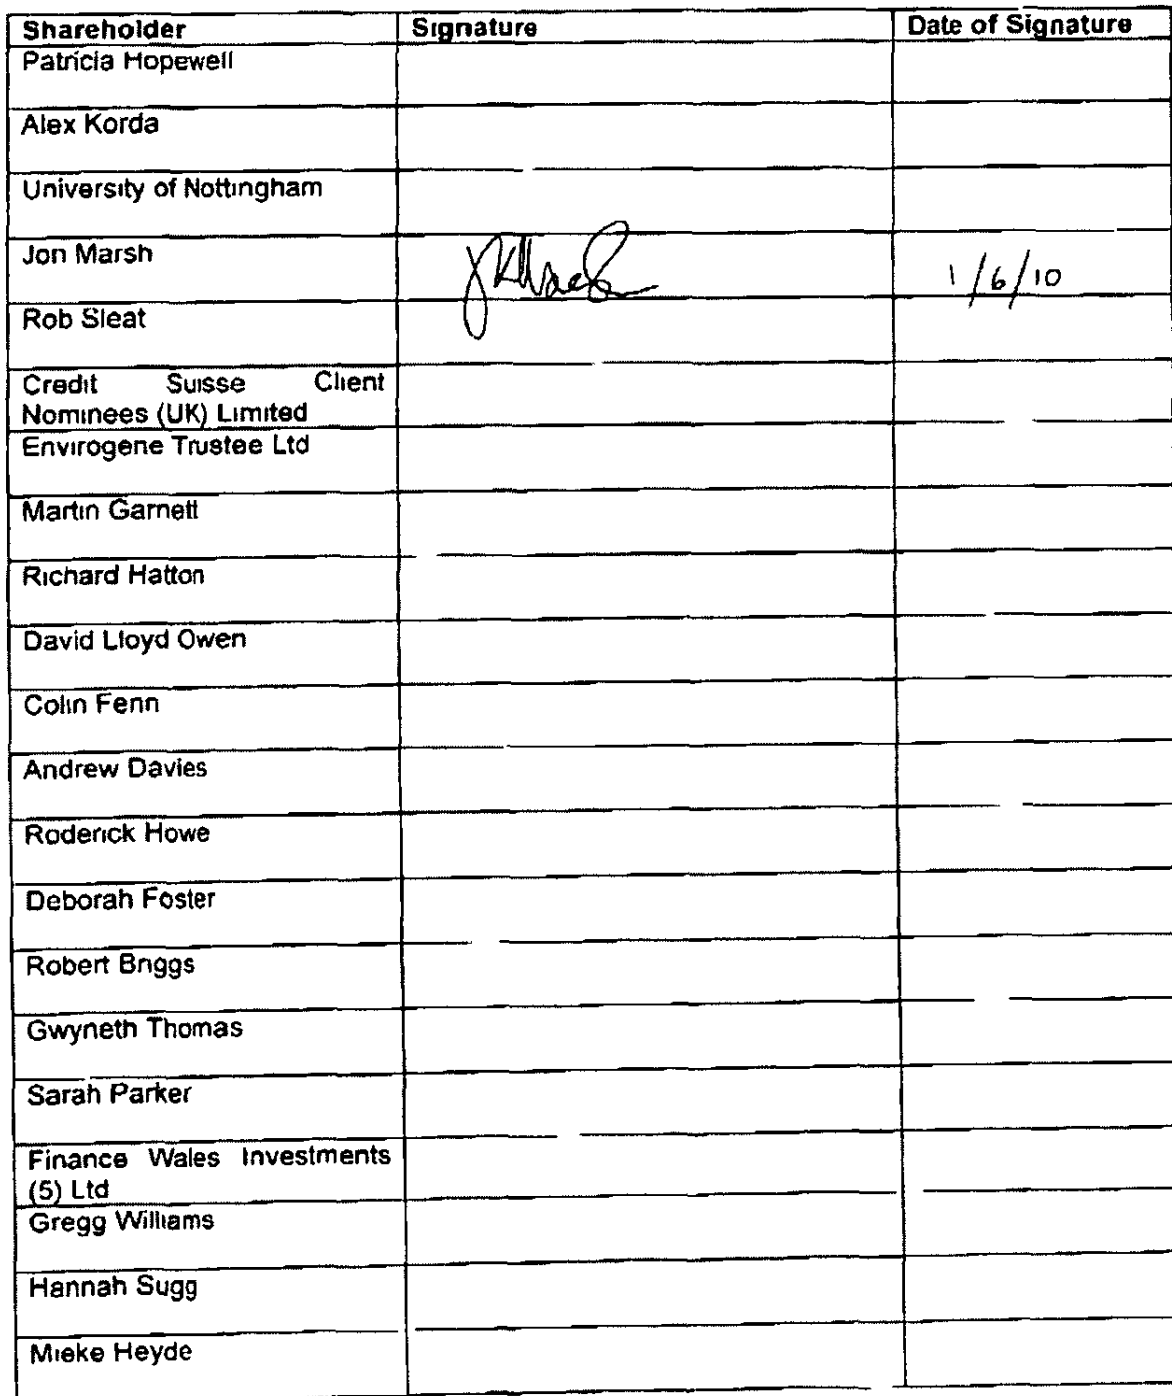 Shareholder Signature Date of Signature
Patricia Hopewell
Alex Korda
University of Nottingham
Jon Marsh 1/6/10
Rob Sleat
Credit Suisse Client
Nominees (UK) Limited
Envirogene Trustee Ltd
Martin Garnett
Richard Hatton
David Lloyd Owen
Colin Fenn
Andrew Davies
Roderick Howe
Deborah Foster
Robert Briggs
Gwyneth Thomas
Sarah Parker
Finance Wales Investments
(5) Ltd
Gregg Williams
Hannah Sugg
Mieke Heyde